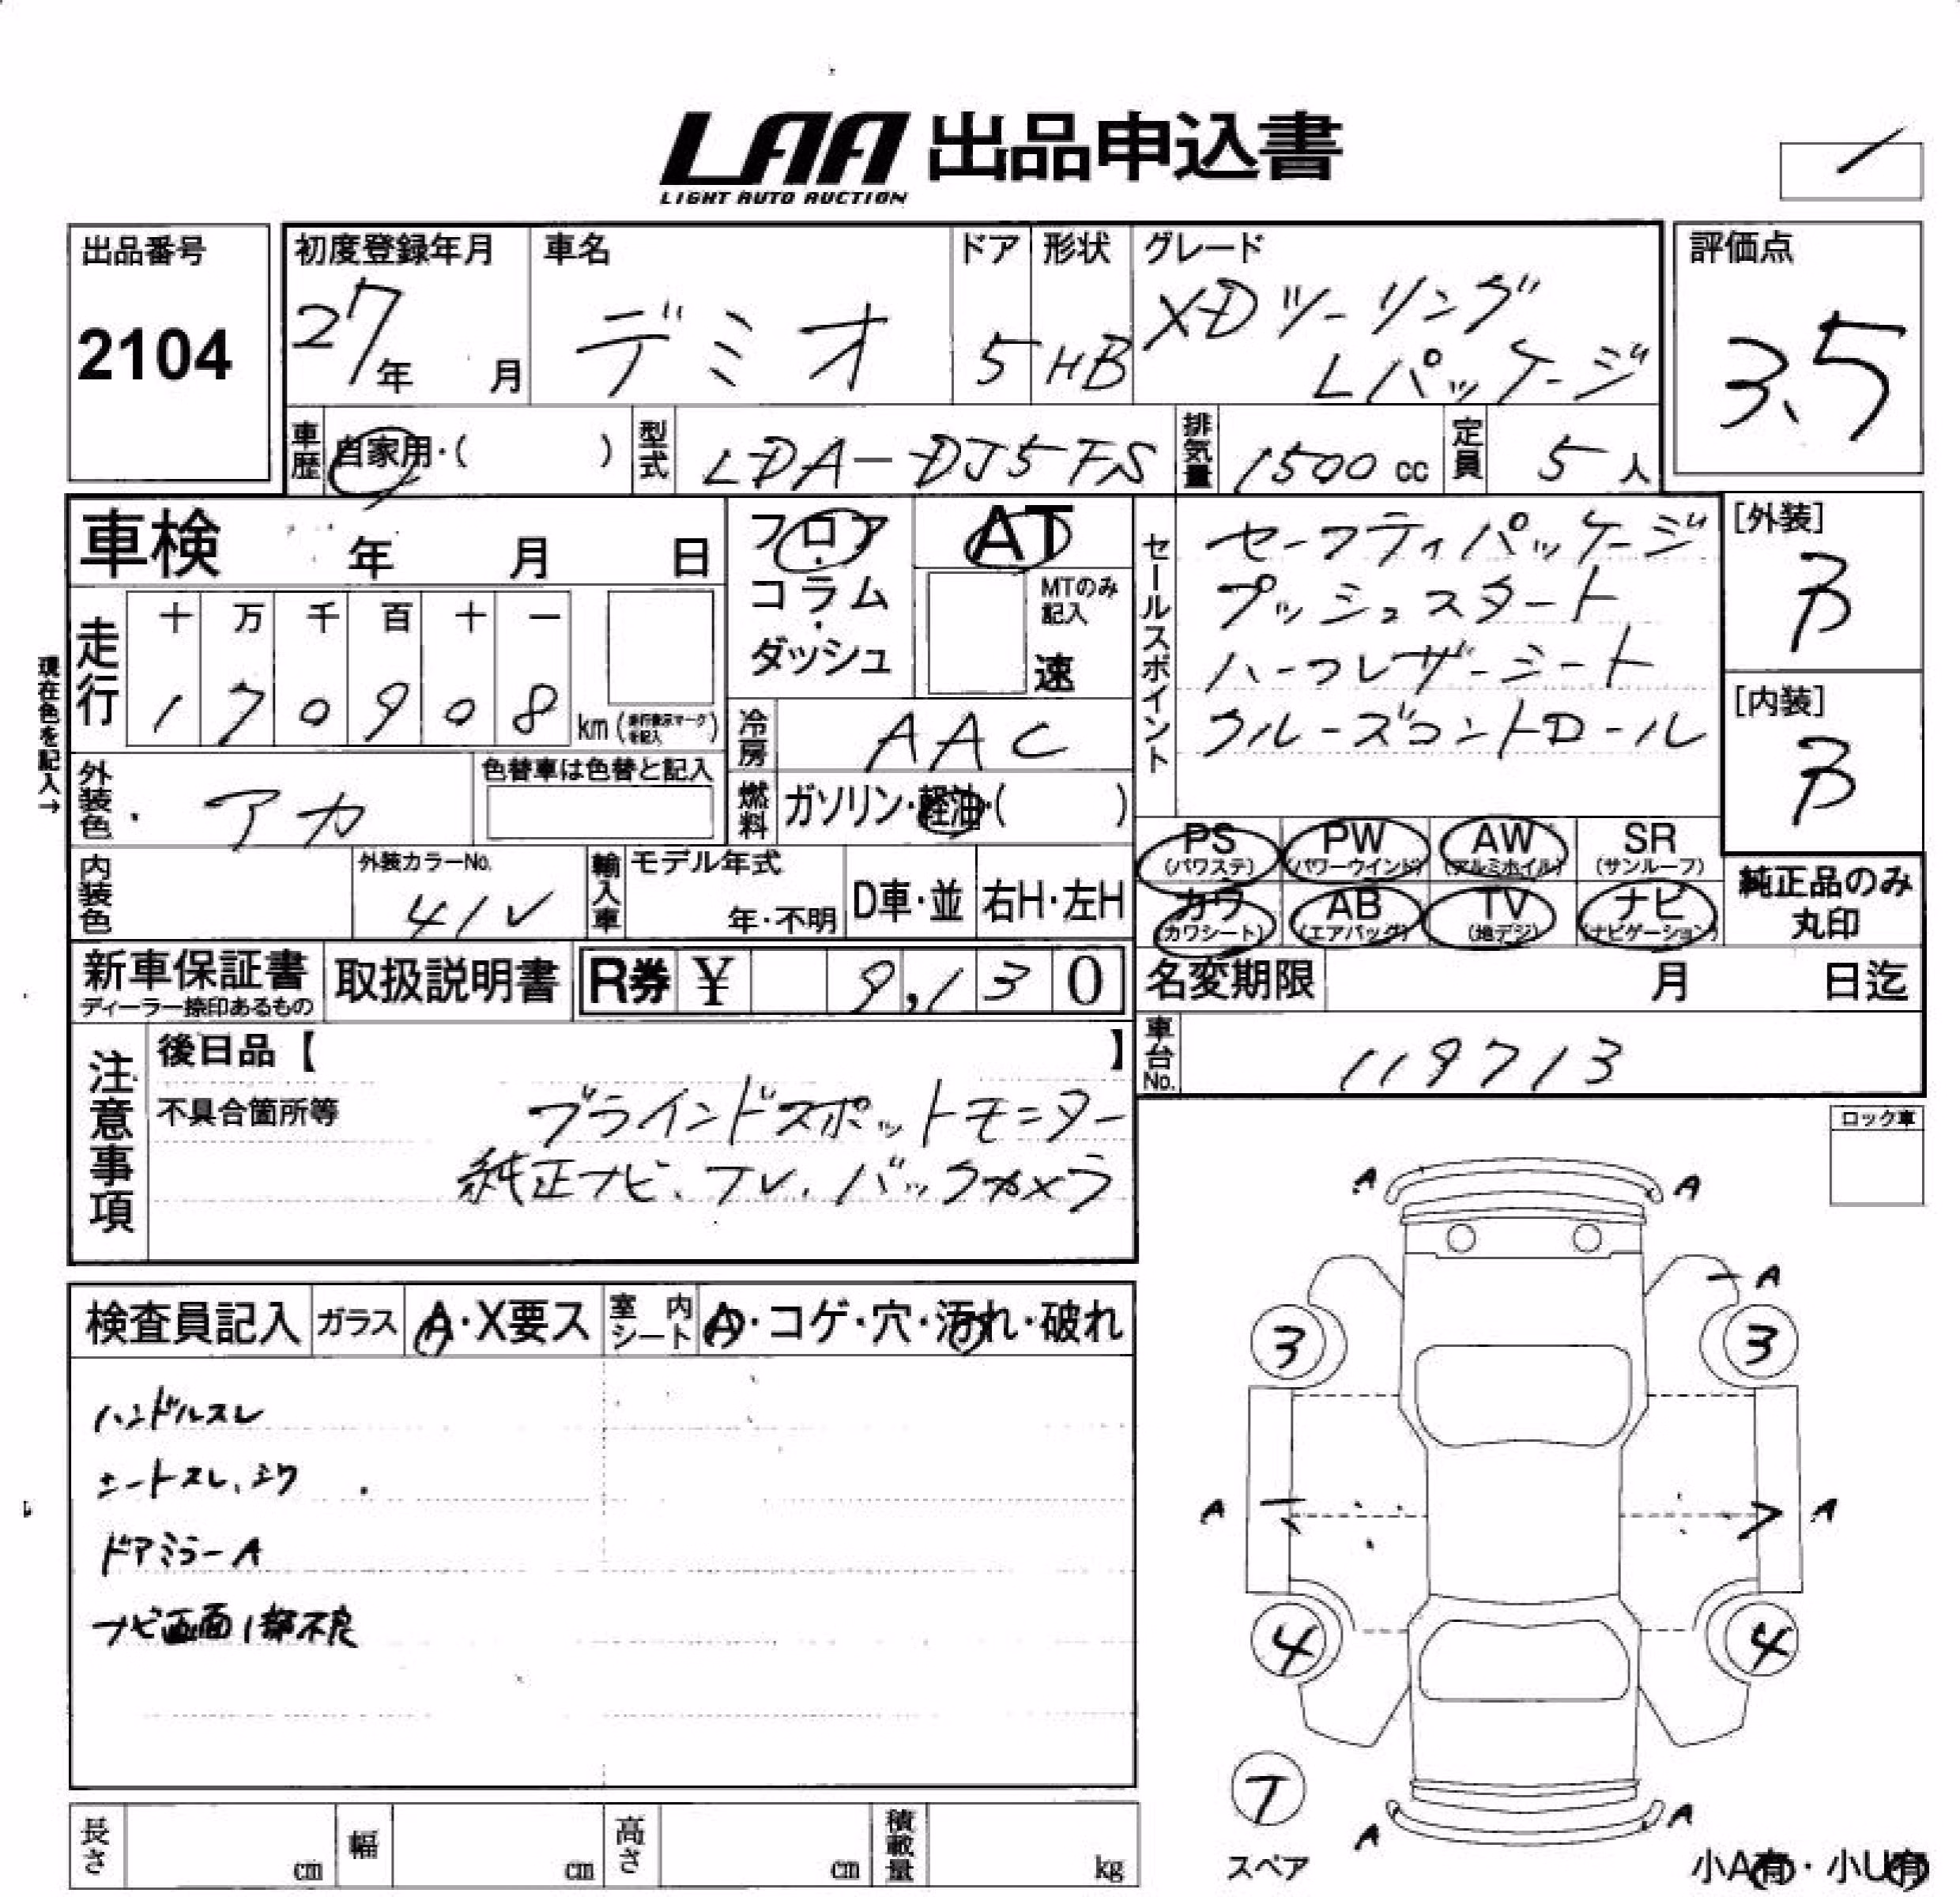 LAA 出品申込書
LIGHT AUTO AUCTION
出品番号
2104
初度登録年月
27年 月
車名
デミオ
ドア
5
形状
HB
グレード
XDツーリング
Lパッケージ
評価点
3.5
車歴
自家用・( )
型式
LDA-DJ5FS
排気量
1500 cc
定員
5 人
車検 年 月 日
フロア
・
コラム
・
ダッシュ
AT
MTのみ
記入
速
セールスポイント
セーフティパッケージ
プッシュスタート
ハーフレザーシート
クルーズコントロール
[外装]
B
[内装]
B
現在色を記入→
走行
十 万 千 百 十 一
1 7 0 9 0 8 km
冷房
AAC
外装色
アカ
色替車は色替と記入
燃料
ガソリン・軽油・( )
PS PW AW SR
(パワステ) (パワーウインド) (アルミホイル) (サンルーフ)
カワ AB TV ナビ
(カワシート) (エアバッグ) (地デジ) (ナビゲーション)
純正品のみ
丸印
内装色
外装カラーNo.
41V
輸入車
モデル年式
年・不明
D車・並
右H・左H
新車保証書
ディーラー捺印あるもの
取扱説明書
R券 ¥ 9,130
名変期限 月 日迄
車台No.
119713
注意事項
後日品【 】
不具合箇所等
ブラインドスポットモニター
純正ナビ、TV、バックカメラ
ロック車
検査員記入
ガラス
A・X要ス
室内シート
A・コゲ・穴・汚れ・破れ
ハンドルスレ
シートスレ、シワ
ドアミラーA
ナビ画面1部不良
A A
A
3 3
A A
4 4
T
スペア
A A
小A有・小U有
長さ cm
幅 cm
高さ cm
積載量 kg